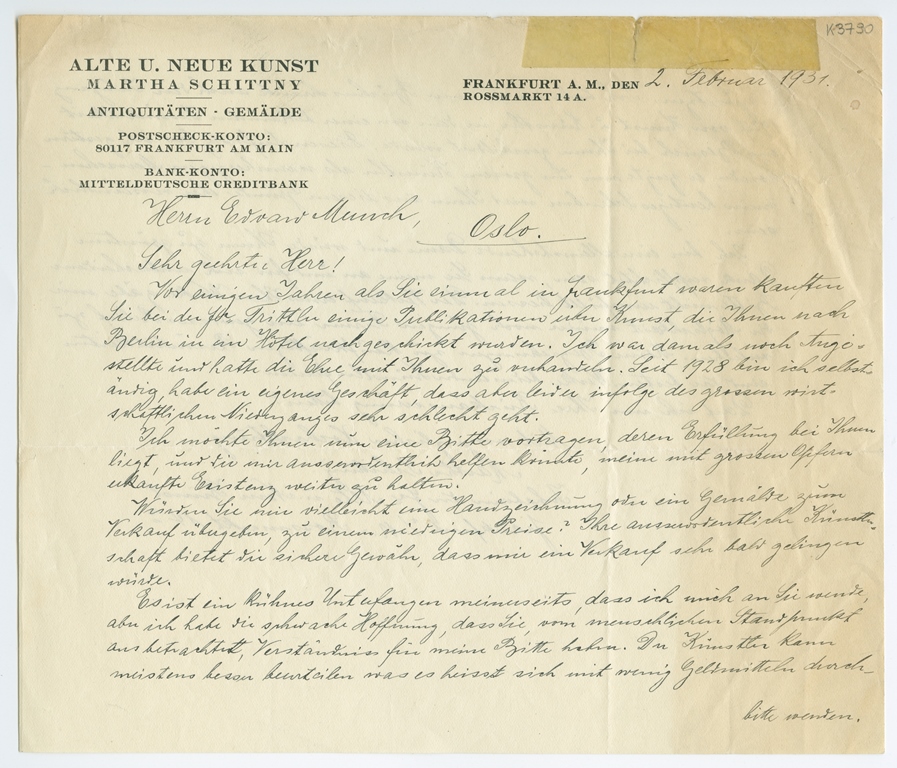 K3790
ALTE U. NEUE KUNST
MARTHA SCHITTNY
ANTIQUITÄTEN · GEMÄLDE
POSTSCHECK-KONTO:
80117 FRANKFURT AM MAIN
BANK-KONTO:
MITTELDEUTSCHE CREDITBANK
FRANKFURT A. M., DEN 2. Februar 1931.
ROSSMARKT 14 A.
Herrn Edvard Munch,
Oslo.
Sehr geehrter Herr!
Vor einigen Jahren als Sie einmal in Frankfurt waren kauften
Sie bei der Fa. Trittler einige Publikationen über Kunst, die Ihnen nach
Berlin in ein Hotel nachgeschickt wurden. Ich war damals noch Ange-
stellte und hatte die Ehre mit Ihnen zu verhandeln. Seit 1928 bin ich selbst-
ändig, habe ein eigenes Geschäft, dass aber leider infolge des grossen wirt-
schaftlichen Niederganges sehr schlecht geht.
Ich möchte Ihnen nun eine Bitte vortragen, deren Erfüllung bei Ihnen
liegt, und die mir ausserordentlich helfen könnte, meine mit grossen Opfern
erkaufte Existenz weiter zu halten.
Würden Sie mir vielleicht eine Handzeichnung oder ein Gemälde zum
Verkauf übergeben, zu einem niedrigen Preise? Ihre ausserordentliche Künstler-
schaft bietet die sichere Gewähr, dass mir ein Verkauf sehr bald gelingen
würde.
Es ist ein kühnes Unterfangen meinerseits, dass ich mich an Sie wende,
aber ich habe die schwache Hoffnung, dass Sie, vom menschlichen Standpunkt
aus betrachtet, Verständniss für meine Bitte haben. Der Künstler kann
meistens besser beurteilen was es heisst sich mit wenig Geldmitteln durch-
bitte wenden.